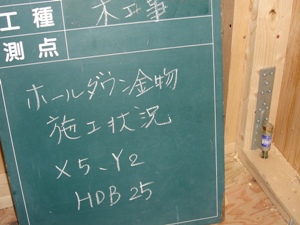 工種 木工事
測点
ホールダウン金物
施工状況
X5、Y2
HDB25